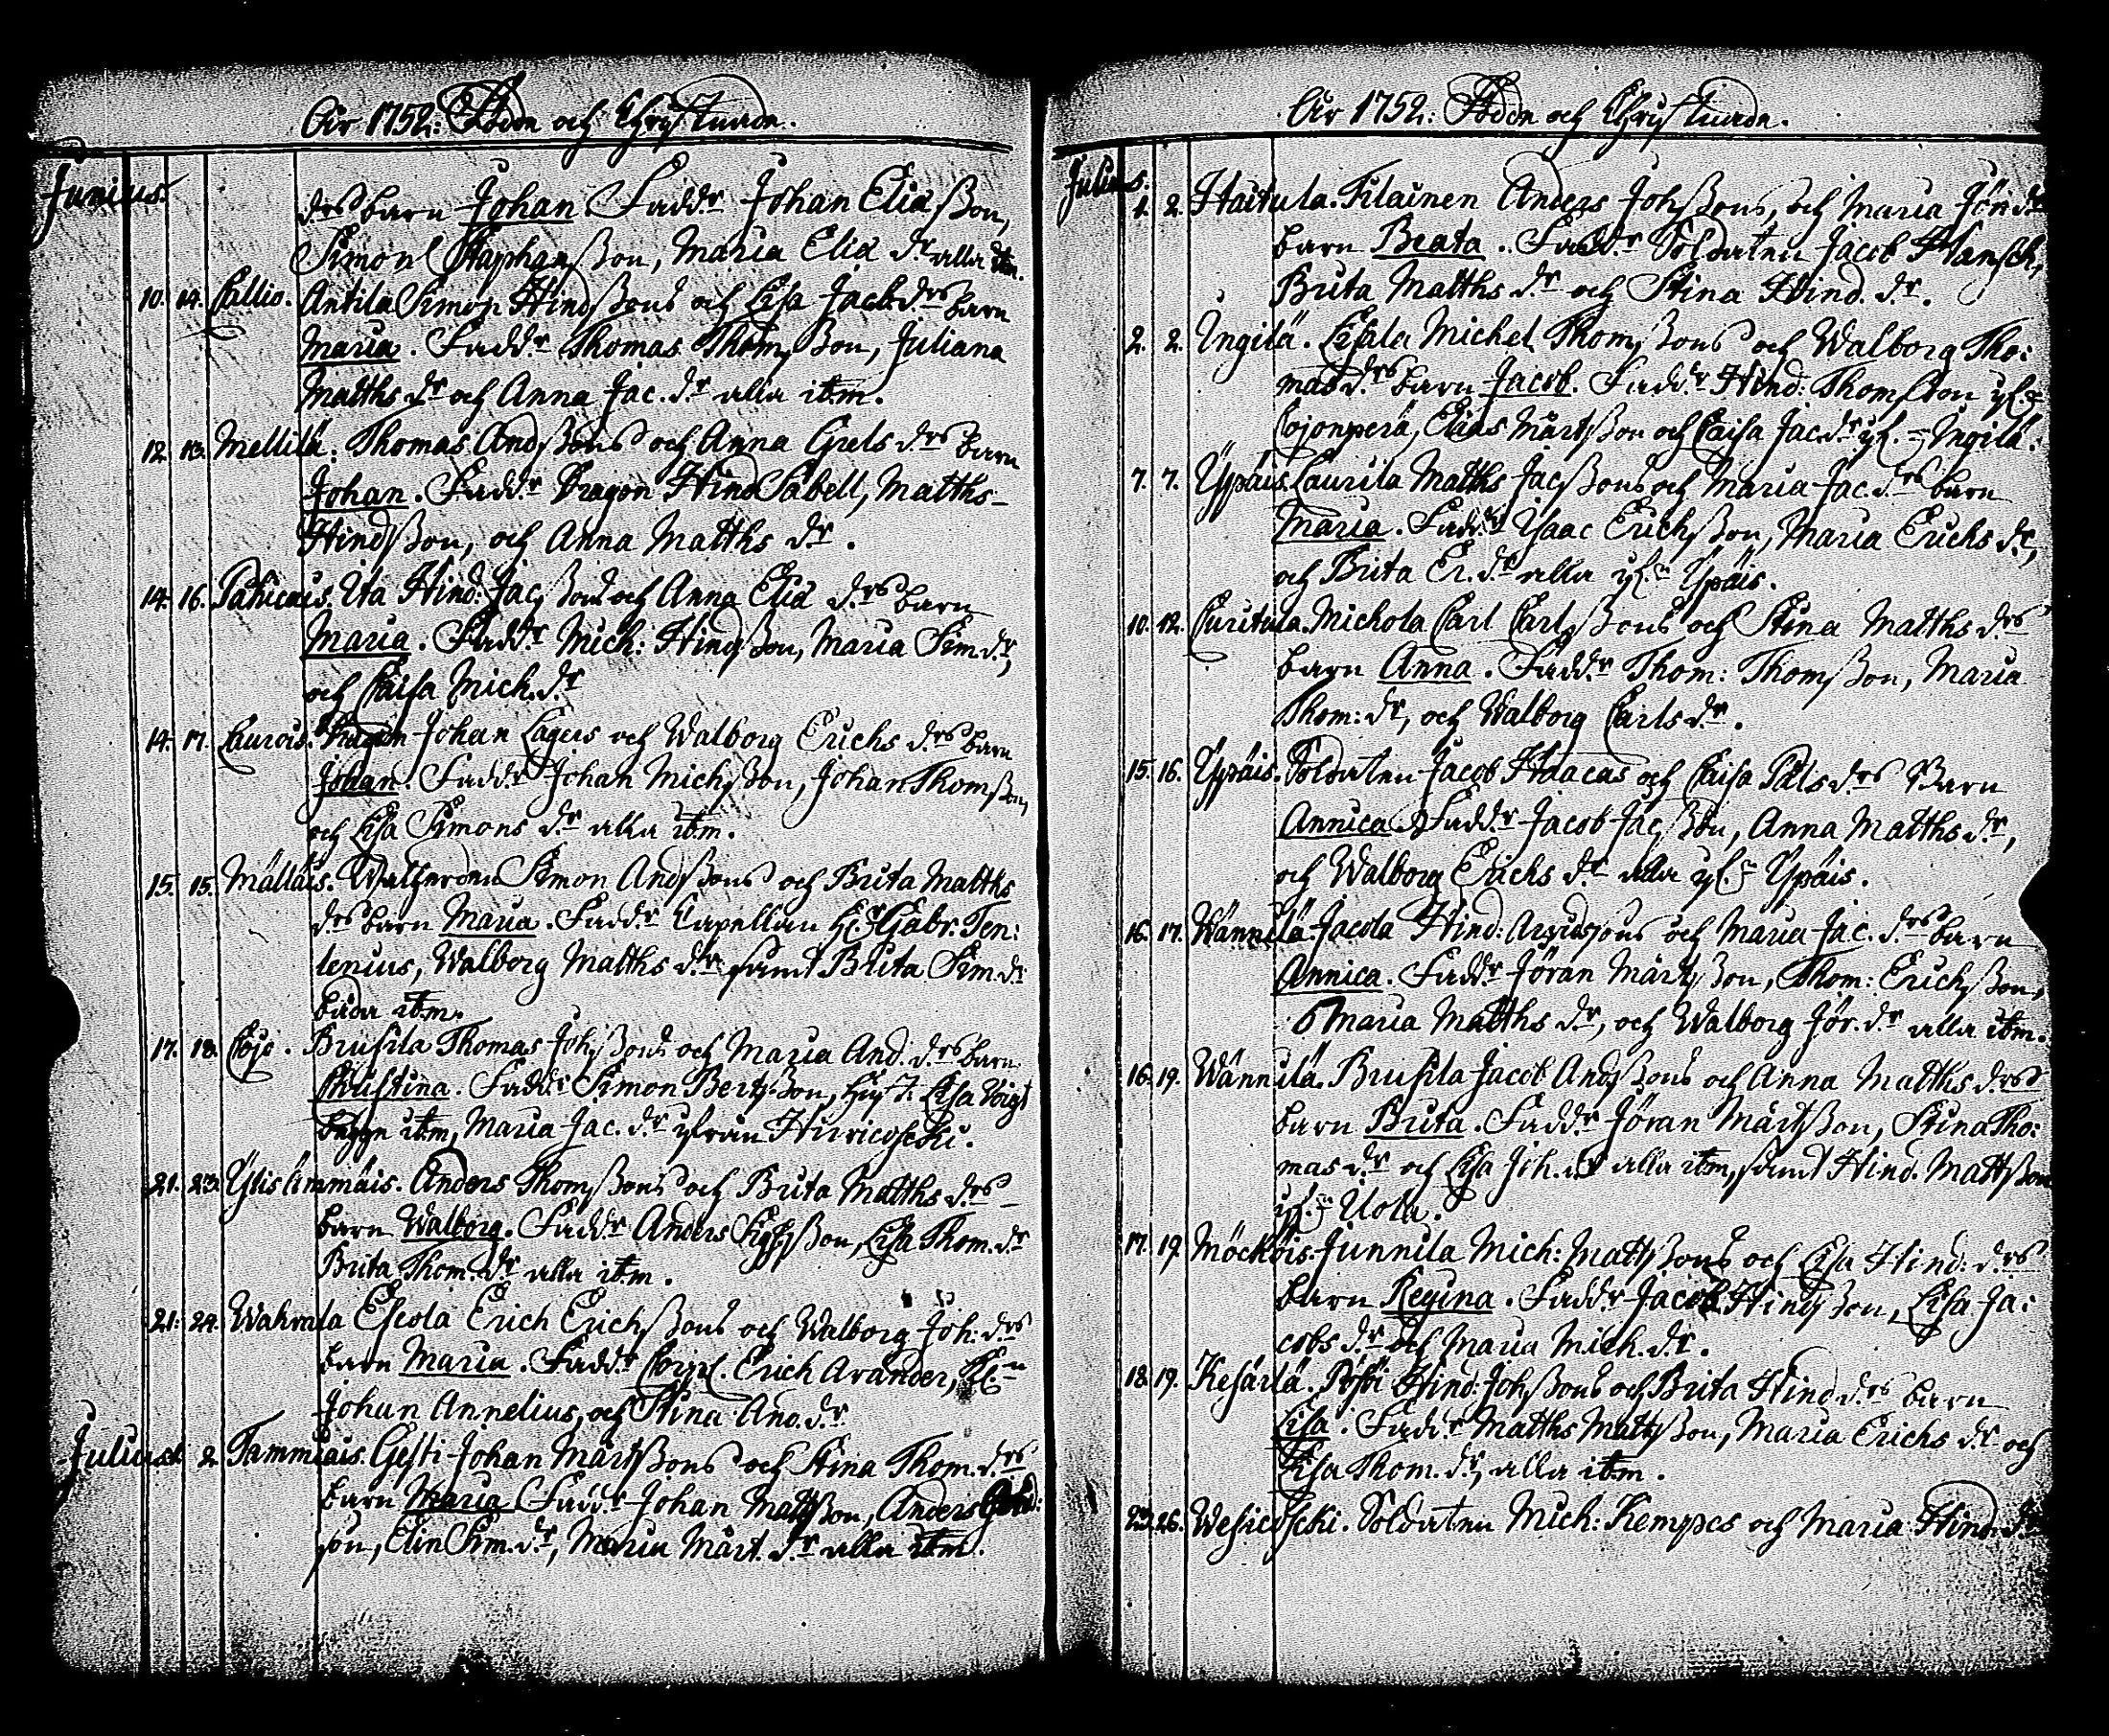 År 1752: Födde och Christnade.
Junius.
drs barn Johan. Faddr Johan Eliæ ßon,
Simon Staphanßon, Maria Eliæ dr alla ibm.
10. 14. Callio. Antila Simon Hindßons och Lisa Jacobdrs barn
Maria. Faddr Thomas Thomßon, Juliana
Matths dr och Anna Jac. dr alla ibm.
12. 13. Mellilä: Thomas Andßons och Anna Grels drs barn
Johan. Faddr Dragon Hind Sabell, Matths
Hindßon, och Anna Matths dr.
14. 16. Pahicais. Uta Hind: Jacßons och Anna Eliæ drs barn
Maria. Faddr Mich: Hindßon, Maria Sim. dr,
och Caisa Mich. dr
14. 17. Caurois. Dragon Johan Lagus och Walborg Erichs drs barn
Johan. Faddr Johan Michßon, Johan Thomßon,
och Lisa Simons dr alla ibm.
15. 15. Mälläis. Simon Andßons och Brita Matths
drs barn Maria. Faddr Capellan Hr Gabr: Ten:
lenius, Walborg Matths dr samt Brita Sim. dr
båda ibm.
17. 18. Cojo. Brusila Thomas Johßons och Maria And. drs barn
Christina. Faddr Simon Bertßon, Lisa Voigt
begge ibm, Maria Jac. dr ifrån Hirvicoski.
21. 23. Ylistämmäis. Anders Thomßons och Brita Matths drs
barn Walborg. Faddr Anders Sigfßon, Lisa Thom. dr
Brita Thom. dr alla ibm.
21. 24. Wahrala Escola Erich Erichßons och Walborg Joh: drs
barn Maria. Faddr Corpl. Erich Arander,
Johan Annelius, och Stina And. dr.
Julius 1. 2. Tammiais. Gesti Johan Mårtßons och Stina Thom. drs
barn Maria Faddr Johan Mattßon, Anders
son, Elin Sim. dr, Maria Mårt. dr alla ibm.
År 1752: Födde och Christnade.
Julius.
1. 2. Haitula. Filainen Anders Johßons, och Maria Jör. drs
barn Beata. Faddr Soldaten Jacob Hansch,
Brita Matths dr och Stina Hind. dr.
2. 2. Yngilä. Cisala Michel Thomßons och Walborg Tho:
mas drs barn Jacob. Faddr Hind: Thomsson yfr
Cojonperä, Elias Mårtßon och Caisa Jac. dr yfr Yngilä.
7. 7. Yypäis. Laurila Matths Jacßons och Maria Jac. drs barn
Maria. Faddr Ysaac Erichßon, Maria Erichs dr,
och Brita Er. dr alla yfr Ypäis.
10. 12. Curitula. Michola Carl Carlßons och Stina Matths drs
barn Anna. Faddr Thom: Thomßon, Maria
Thom: dr, och Walborg Carls dr.
15. 16. Yypäis. Soldaten Jacob Haacas och Caisa Påls drs Barn
Annica. Faddr Jacob Jacßon, Anna Matths dr,
och Walborg Erichs dr alla yfr Ypäis.
16. 17. Wännilä. Jacola Hind: och Maria Jac. drs barn
Annica. Faddr Jöran Mårtßon, Thom: Erichßon,
Maria Matths dr, och Walborg Jör. dr alla ibm.
16. 19. Wännilä. Brusila Jacob Andßons och Anna Matths drs
barn Brita. Faddr Jöran Mårtßon, Stina Tho:
mas dr och Lisa Joh. dr alla ibm, samt Hind. Mattßon
yfr Uola.
17. 19. Möcköis. Junnila Mich: Mattßons och Lisa Hind: drs
barn Regina. Faddr Jacob Hindßon, Lisa Ja:
cobs dr och Maria Mich. dr.
18. 19. Kesärlä. Hind: Johßons och Brita Hind. drs barn
Lisa. Faddr Matths Mattßon, Maria Erichs dr och
Lisa Thom. dr, alla ibm.
23. 26. Wesicoscki. Soldaten Mich: Kempes och Maria Hind. drs